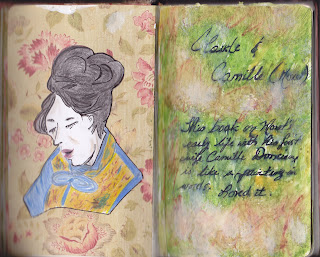 Claude &
Camille (Novel)
This book on Monet's
early life with his first
wife Camille Doncieux
is like a painting in
words. Loved it.